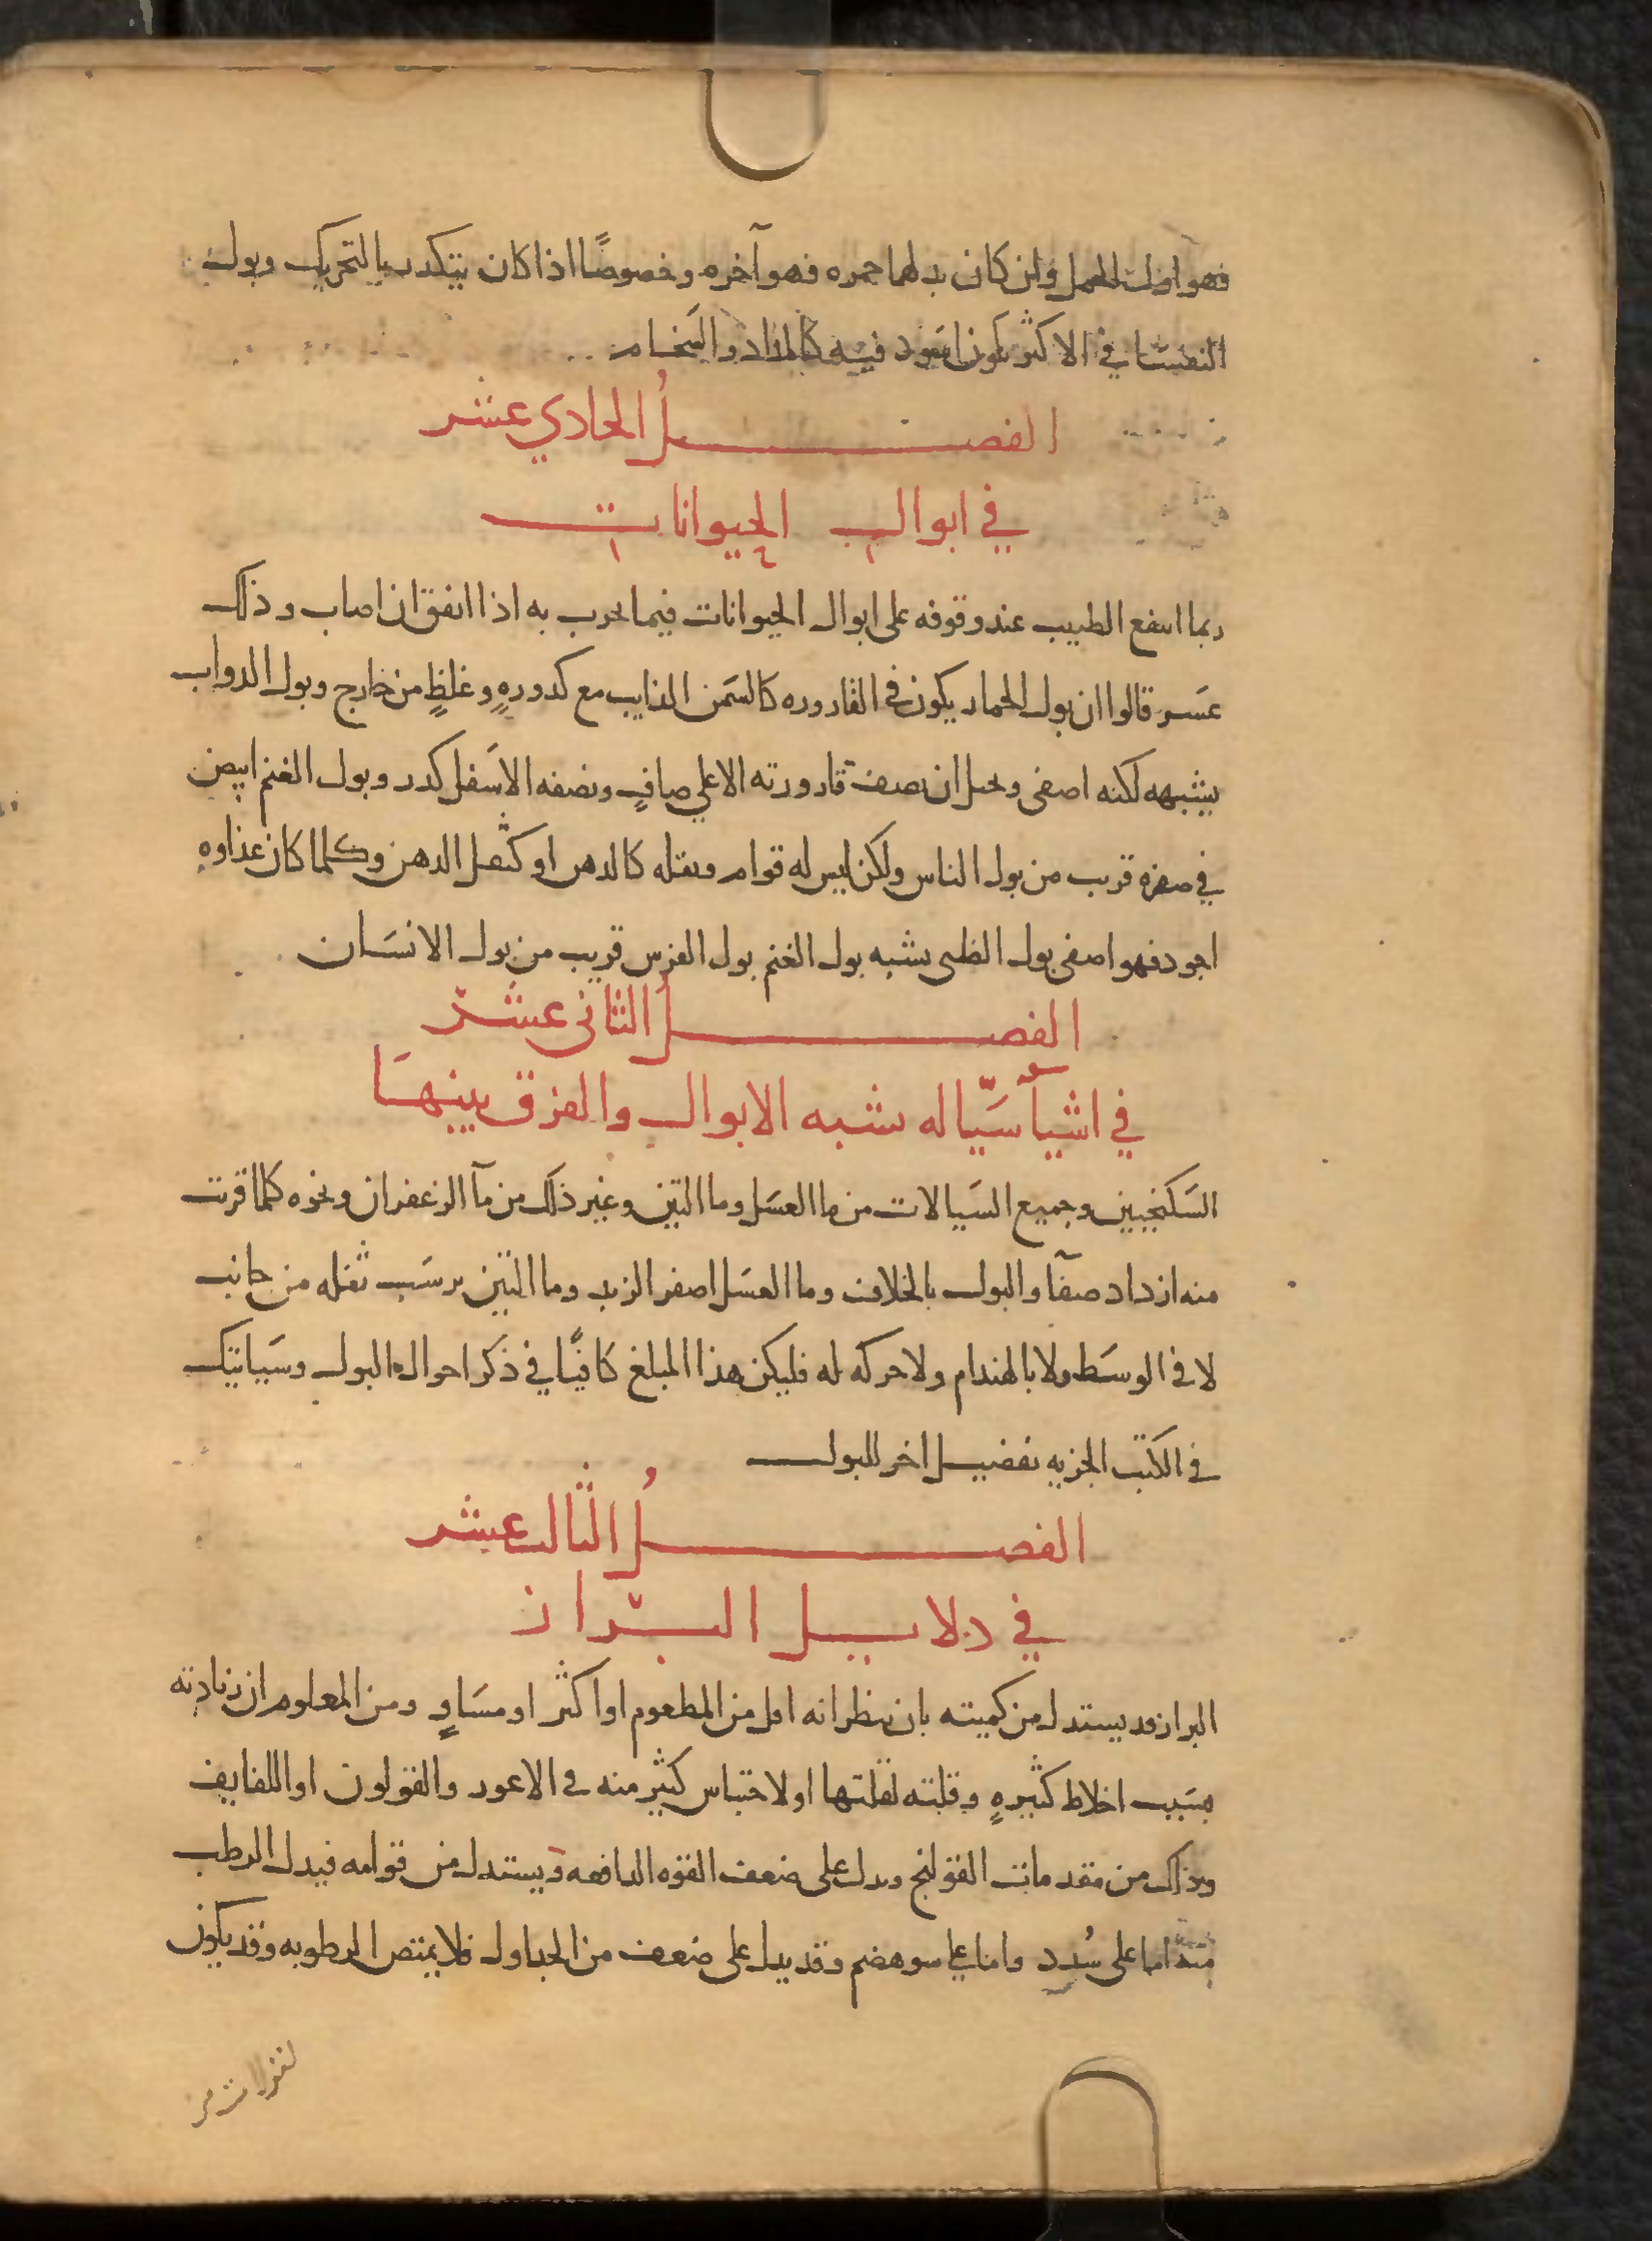 فهو اول الحمل وان كان بدلها حمره فهو آخره وخصوصًا اذا كان يتكدر بالتحريك وبول
النفسا في الاكثر يكون اسود فيه كالمداد والسخام
الفصل الحادي عشر
في ابوال الحيوانات
ربما انتفع الطبيب عند وقوفه على ابوال الحيوانات فيما يجرب به اذا اتفق ان اصاب وذلك
عسر قالوا ان بول الحمار يكون في القاروره كالسمن الذايب مع كدورهٍ وغلظٍ من خارج وبول الدواب
يشبهه لكنه اصفى ويخيل ان نصف قارورته الاعلي صافٍ ونصفه الاسفل كدر وبول الغنم ابيض
في صفره قريب من بول الناس ولكن ليس له قوام وثفله كالدهن او كثفل الدهن وكلما كان غذاوه
اجود فهو اصفى بول الظبى يشبه بول الغنم بول الفرس قريب من بول الانسان
الفصل الثانى عشر
في اشيآ سيّاله تشبه الابوال والفرق بينها
السكنجبين وجميع السيالات من ما العسل وما التين وغير ذلك من مآ الزعفران ونحوه كلما قربت
منه ازداد صفآ والبول بالخلاف وما العسل اصفر الزبد وما التين يرسب ثفله من جانب
لا في الوسط ولا بالهندام ولا حركه له فليكن هذا المبلغ كافيًا في ذكر احوال البول وسياتيك
في الكتب الجزيه تفصيل اخر للبول
الفصل الثالث عشر
في دلايل البراز
البراز قد يستدل من كميته بان ينظر انه اقل من المطعوم او اكثر او مساوٍ ومن المعلوم ان زيادته
بسبب اخلاط كثيرهٍ وقلته لقلتها او لاحتباس كثير منه في الاعور والقولون او اللفايف
وذلك من مقدمات القولنج ويدل على ضعف القوه الدافعه ويستدل من قوامه فيدل الرطب
منه اما على سُدد واما على سو هضم وقد يدل على ضعف من الجداول فلا يمتص الرطوبه وقد يكون